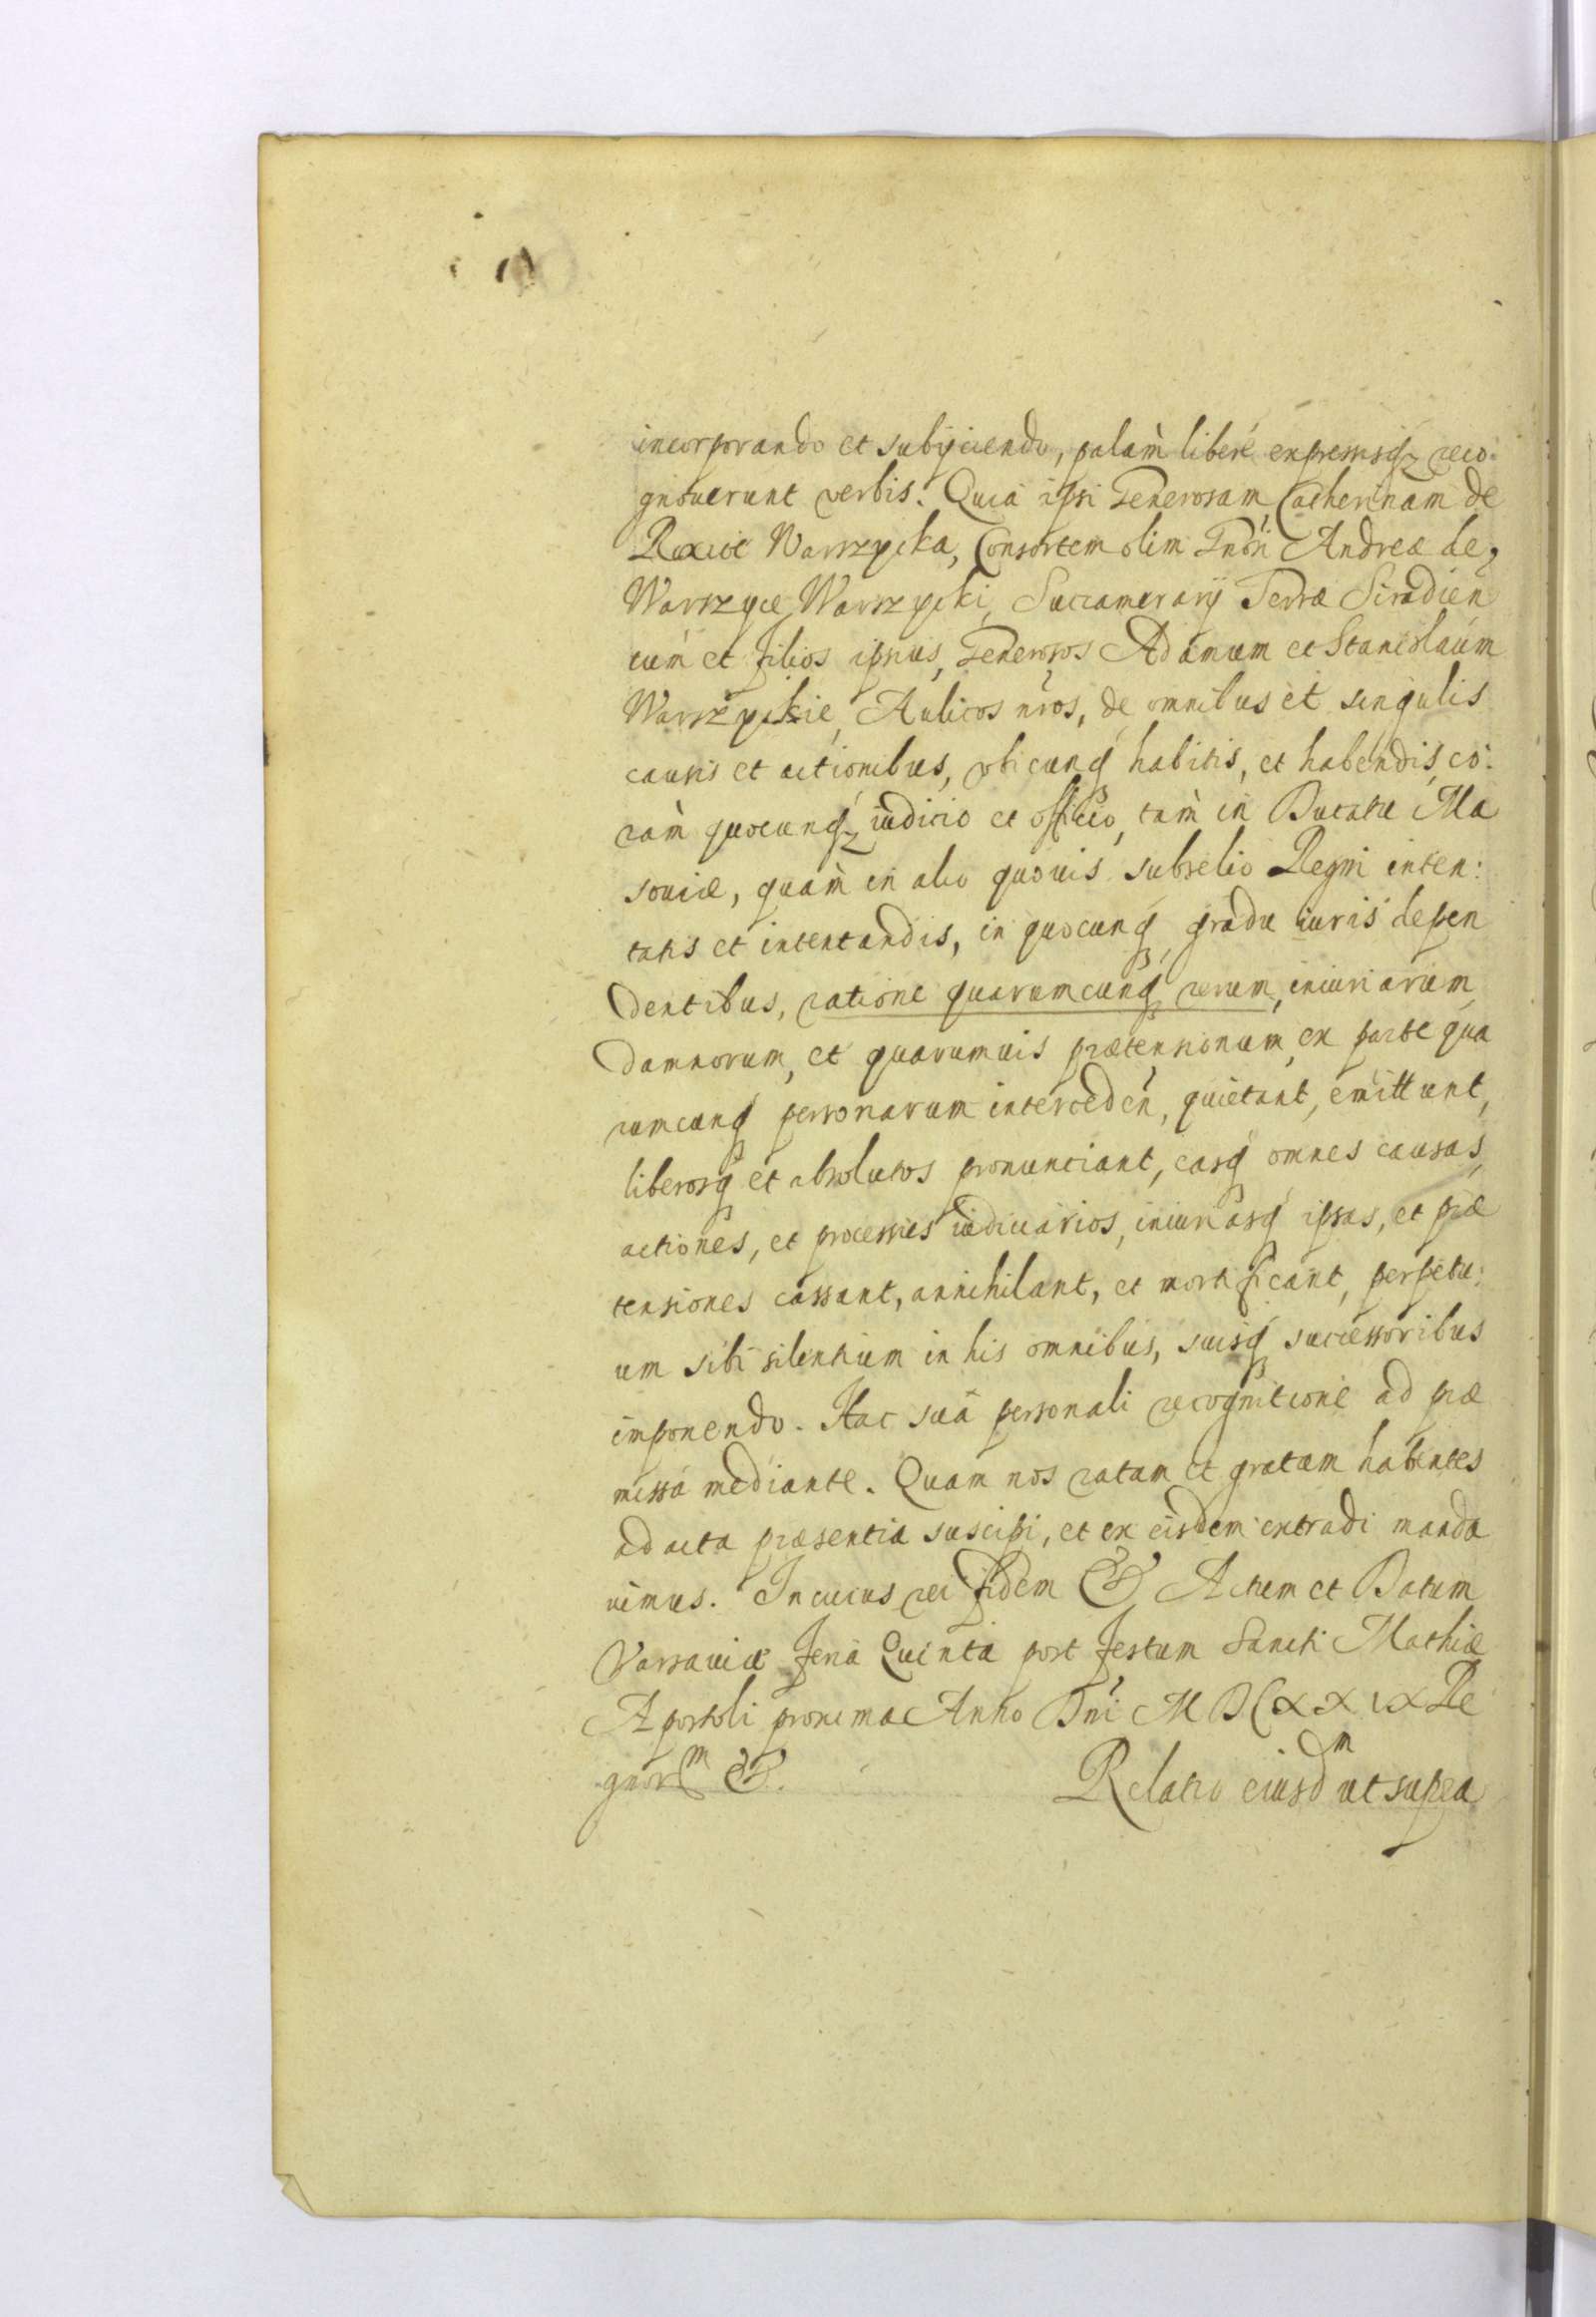 incorporando et subÿciendo, palam̀ liberé expressisq̨ reco:
gnouerunt verbis. Quia ipsi Generosam Catherinam de
Warszycka, Consortem olim Gn̄ón Andreæ de,
Warszyce Warszycki, Succamerarÿ Terræ Siradień
cum̀ et filios ipsius, Generosos Adamum et Stanislaum
Warszyckie, Aulicos nr̄os, de omnibus et singulis
causis et actionibus, vbicunq́ habitis, et habendis, co:
ram̀ quocunq́ iudicio et officio, tam̀ in Ducatu Ma
souiæ, quam̀ in alio quouis subselio Regni inten:
tatis et intentandis, in quocunq́ gradu iuris depen
dentibus, ratione quarumcunq́ rerum, iniuriarum
damnorum, et quarumuis prætensionum, ex parte qua
rumcunq́ personarum interceden̄, quietant, emittunt,
liberosq́ et absolutos pronunciant, easq́ omnes causas,
actiones, et processus iudiciarios, iniuriasq́ ipsas, et præ
tensiones cassant, annihilant, et mortificant, perpetu:
um sibi silentium in his omnibus, suisq́ successoribus
imponendo. Hac suâ personali recognitione ad præ
missa mediante. Quam nos ratam et gratam habentes
ad acta præsentia suscipi, et ex eisdem extradi manda
uimus. In cuius rei fidem & Actum et Datum
Varsauiæ feria Quinta post festum Sancti Mathiæ
Apostoli proxima Anno Dn̄i MDCXXIX Re
gnorᵐ &.
Relatio eiusdᵐ ut supra